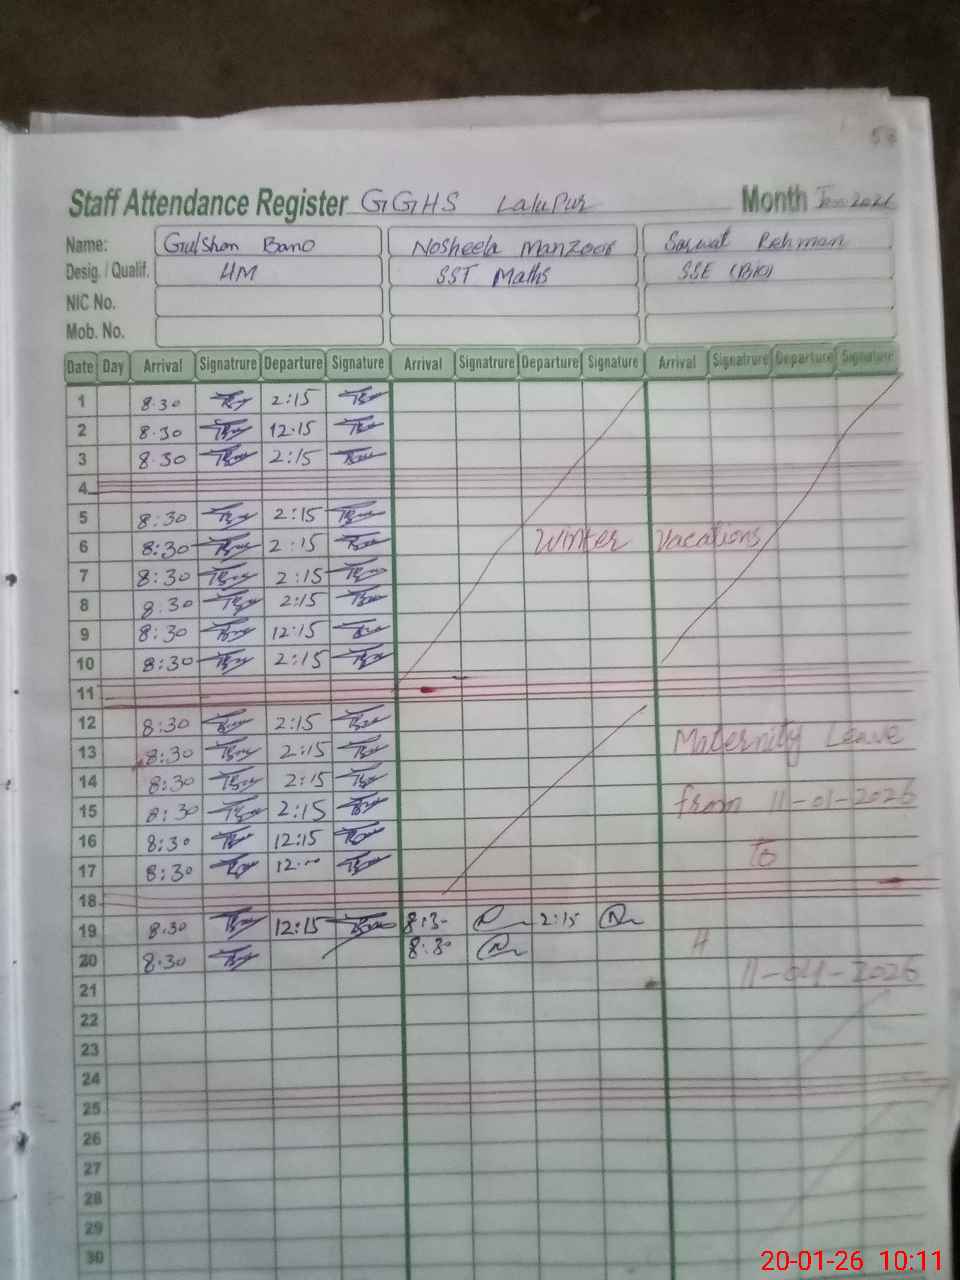 Staff Attendance Register GGHS Lalupur Month Jan 2026
Name: Gulshan Bano Nosheela Manzoor Sarwat Rehman
Desig. / Qualif. HM SST Maths SSE (Bio)
NIC No.
Mob. No.
Date Day Arrival Signatrure Departure Signature Arrival Signatrure Departure Signature Arrival Signatrure Departure Signature
1 8.30 2:15
2 8.30 12.15
3 8.30 2:15
4
5 8:30 2:15
6 8:30 2:15 Winter vacations
7 8:30 2:15
8 8.30 2:15
9 8:30 12:15
10 8:30 2:15
11
12 8:30 2:15
13 8:30 2:15 Maternity Leave
14 8:30 2:15
15 8:30 2:15 from 11-01-2026
16 8:30 12:15
17 8:30 12:00 to
18
19 8.30 12:15 8:3- 2:15
20 8.30 8:30
21 11-04-2026
22
23
24
25
26
27
28
29
30
20-01-26 10:11